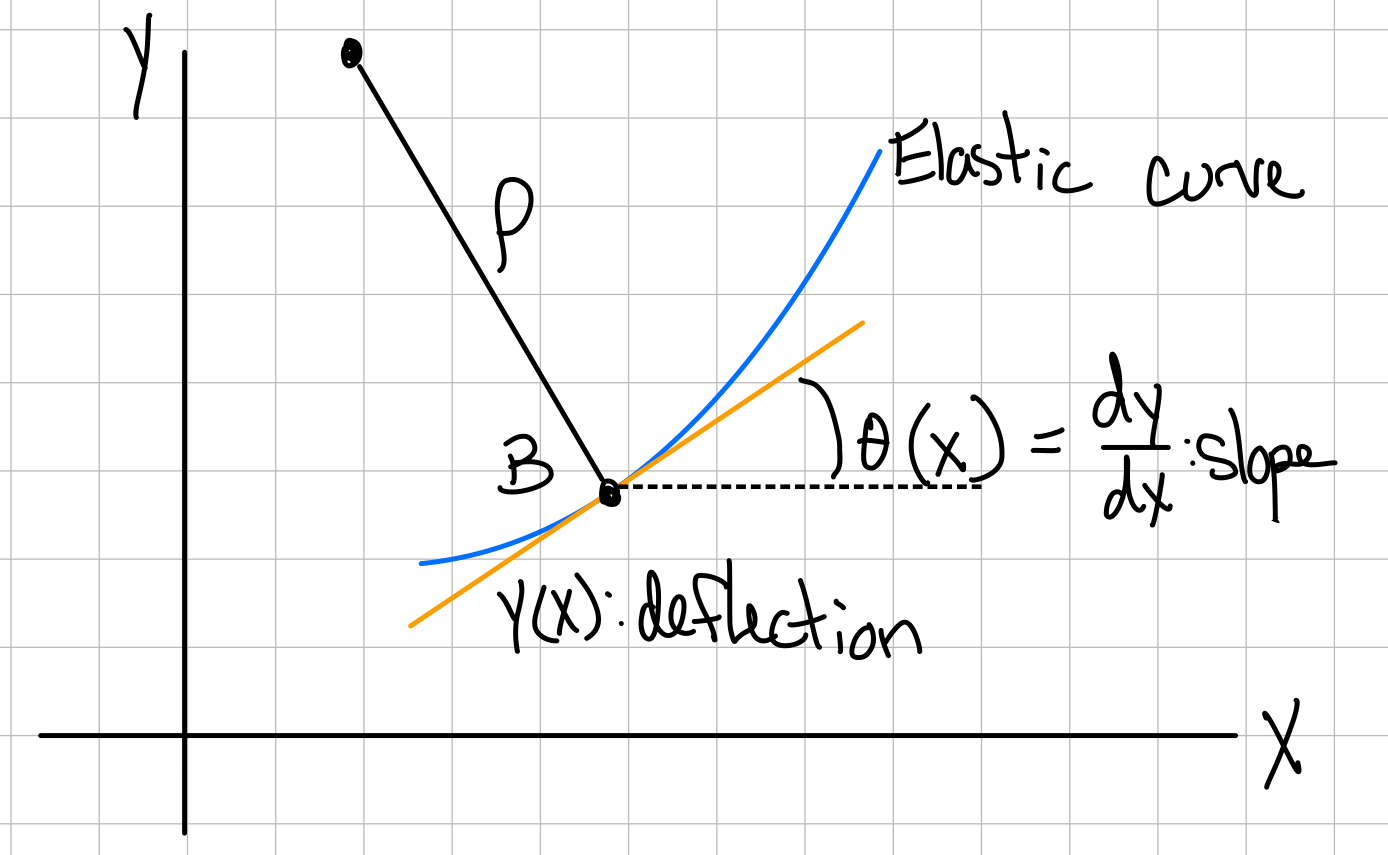 Y
Elastic curve
ρ
θ(x) = dy/dx : slope
B
Y(X) : deflection
X